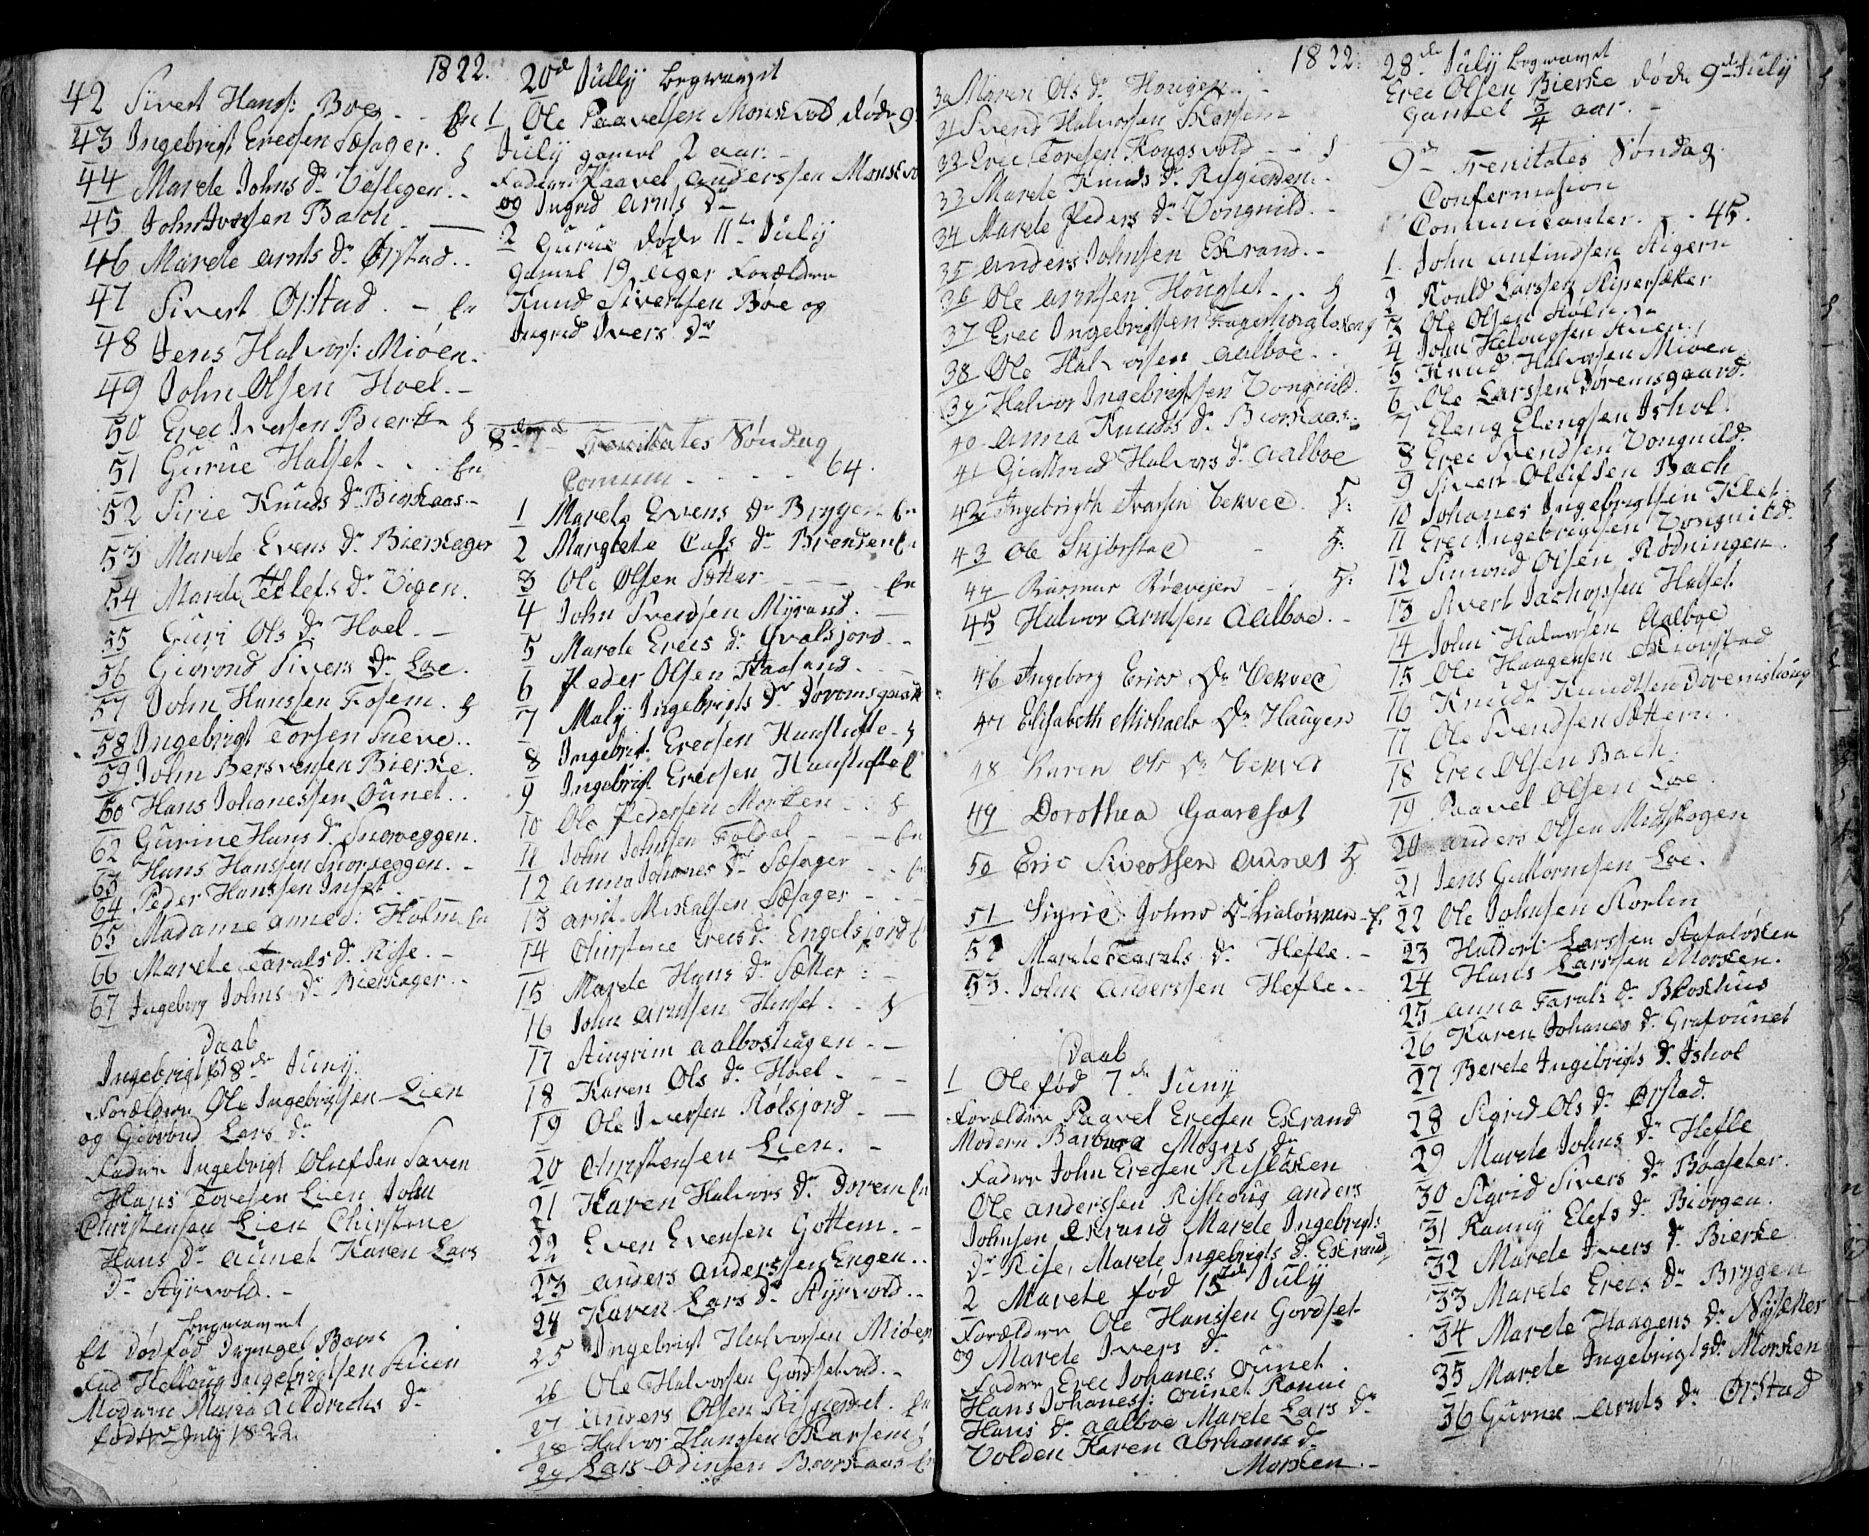 1822.
42 Sivert Hanss: Boe - - En
43 Ingebrigt Erecsen Sæsager. §
44 Marete Johns Dr Vesligen. -
45 John Iversen Bach. —
46 Marete Arnts Dr Ørstad. .
47 Sivert Ørstad. - En
48 Jens Halvors: Mioen.
49 John Olsen Hoel. -
50 Erec Iversen Bierke §
51 Gurue Halset. . . En
52 Sirie Knuds Dr Biørkaas. -
53 Marete Evens Dr Bierkager
54 Marete Dr Vigen.
55 Guri Ols Dr Hoel. -
56 Giørond Sivers Dr Loe.
57 John Hanssen Fosem. §
58 Ingebrigt Torsen Sueve. .
59 John Bersvensen Bierke.
60 Hans Johanessen Ounet. .
62 Gurine Hans Dr Snoeveggen.
63 Hans Hanssen Snoeveggen. -
64 Peder Hanssen Inset.
65 Madame Anne d: Holm En
66 Marete Tarals Dr Rise. -
67 Ingeborg Johns Dr Bierkager. -
Daab
Ingebrigt fød 8de Juny.
Forældre Ole Ingebrigtsen Lien
og Giørond Lars Dr
Fadere Ingebrigt Olufsen Sæven
Hans Toresen Lien John
Christensen Lien Christine
Hans Dr Aunet Karen Lars
Dr Styrvold. -
begravet
1 Et Død fød Drenge Barn
Fad Helloug Ingebrigtsen Stuen
Moderne Maria Dr
født July 1822.
20d July begravet
1 Ole Paavelsen Monsvold døde 9
July gamel 2 aar. -
Fadere Paavel Anderssen Monsvo
og Ingrid Arnts Dr
2 Gurue døde 11te July
gamel 19 uger Forældre
Knud Sivertsen Boe og
Ingrid Ivers Dr
8de Trenitates Søndag
Comuni - - - - - 64.
1 Marete Evens Dr Brygen En
2 Margrete Dr Brenden En
3 Ole Olsen Sætter - - - En
4 John Svendsen Myrand. —
5 Marete Erecs Dr Qvalsjord. -
6 Peder Olsen Staaland. —
7 Maly Ingebrigts Dr Doromsgaard
8 Ingebrigt Erecsen Hunstufte - §
9 Ingebrigt Erecsen Hunstufte §
10 Ole Pedersen Morken - - §
11 John Johnsen Foldal - - - En
12 Anna Johanes Dr Sæsager - - En
13 Arnt Mikalsen Sæsager - - -
14 Christine Erecs Dr Engelsjord En
15 Marete Hans Dr Sætter : -
16 John Arntsen Hinset. - - §
17 Stingrim Aalboshagen. -
18 Karen Ols Dr Hoel - - -
19 Ole Iversen Rolsjord. - —
20 Christensen Lien. -
21 Karen Halvors Dr Dorem En
22 Even Evensen Gottem. -
23 Anders Anderssen Engen. .
24 Karen Lars Dr Styrvold. .
25 Ingebrigt Halvorsen Mioen
26 Ole Halvorsen Gordsetvold. -
27 Anders Olsen Risgierdet. En
28 Halvor Hansen Skarsem §
29 Lars Odinsen Biørkaas En
1822.
30 Maren Ols Dr Hougen. . -
31 Svend Halvorsen Skarsem
32 Erec Toresen Kongsvold - - §
33 Marete Knuds Dr Risgierden. -
34 Marete Peders Dr Vongnild. -
35 Anders Johnsen Ekrand. -
36 Ole Arntsen Hougset. . §
37 Erec Ingebrigtsen Fagerhougløkken §
38 Ole Halvorsen Aalboe. .
39 Halvor Ingebrigtsen Vongnild.
40 Anna Knuds Dr Biørkaas. -
41 Giertrud Halvors Dr Aalboe
42 Ingebrigth Ivarsen Vekvee. §:
43 Ole Skjørstae - §:
44 Rasmus - . §:
45 Halvor Arntsen Aalboe. -
46 Ingeborg Erics Dr Vekvee
47 Elisabeth Michaels Dr Haugen
48 Karen Ols Dr Vekvee
49 Dorothea Gaardsøt
50 Eric Sivertsen Aunet §.
51 Sigrie Johns Dr - §.
52 Marete Tarals Dr Hefle. -
53. John Anderssen Hefle. -
Daab
1 Ole fød 7de Juny
Forældre Paavel Erecsen Ekrand
Modern Barbara Mogns Dr
Fadere John Erecsen Risløkken
Ole Anderssen Rishoug Anders
Johnsen Ekrand Marete Ingebrigts
Dr Rise, Marete Ingebrigts Dr Ekrand
2 Marete fød 15de July
Forældre Ole Hansen Gordset
og Marete Ivers Dr
Fadere Erec Johanes Ounet.
Hans Johaness: Ounet Ranni
Hans Dr Aalboe Marete Lars Dr
Volden Karen Abrhams Dr
Morken. -
28de July begravet
Erec Olsen Bierke døde 9de July
Gamel 3/4 aar. -
9de Trenitates Søndag.
Confermasion
Comunicanter. - . 45.
1 John Anfindsen Stigern
2 Roald Larssen Stipersætter
3 Ole Olsen
4 John Helougsen Stuen.
5 Knud Halvorsen Mioen
6 Ole Larssen Doremsgaard.
7 Eleng Elengsen Ishol.
8 Erec Svendsen Vongnild.
9 Sivert Olufsen Bach
10 Johanes Ingebrigtsen Klet.
11 Erec Ingebrigtsen Vongnild.
12 Simond Olsen Rødningen.
13 Sivert Jachopsen Halset.
14 John Halvorsen Aalboe
15 Ole Haagensen Skiørstad
16 Knudt Knudtsen Doremshoug
17 Ole Svendsen Sættern.
18 Erec Olsen Bach.
19 Paavel Olsen Loe.
20 Anders Olsen Mettskogen
21 Jens Guttormsen Loe.
22 Ole Johnsen
23 Haldor Larssen
24 Hans Larssen Morken.
25 Anna Tarals Dr Blokhus
26 Karen Johanes Dr Grafounet
27 Berete Ingebrigts Dr Ishol
28 Sigrid Ols Dr Ørstad.
29 Marete Johns Dr Hefle
30 Sigrid Sivers Dr Baaseter.
31 Ranny Elefs Dr Biørgen.
32 Marete Ivers Dr Bierke
33 Marete Erecs Dr Brygen
34 Marete Haagens Dr Nysetter
35 Marete Ingebrigts Dr Morken
36 Gurue Arnts Dr Ørstad